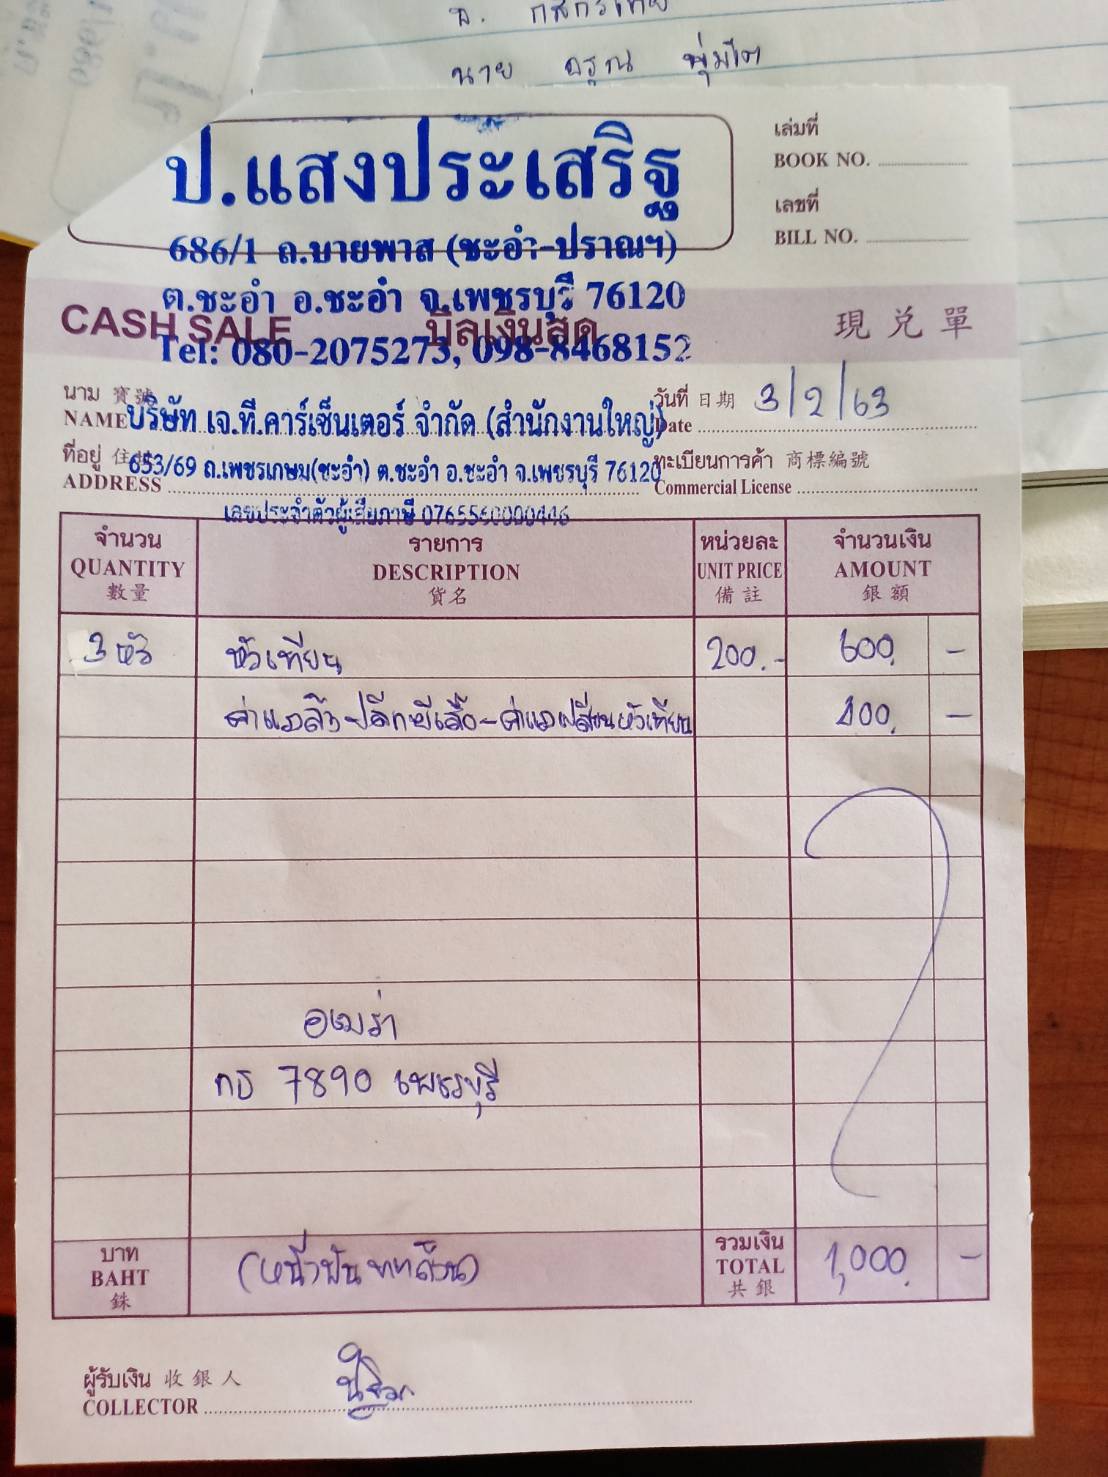 นาย อรุณ พุ่มไต
ป.แสงประเสริฐ
686/1 ถ.บายพาส (ชะอำ-ปราณฯ)
ต.ชะอำ อ.ชะอำ จ.เพชรบุรี 76120
Tel: 080-2075273, 098-8468152
เล่มที่
BOOK NO.
เลขที่
BILL NO.
CASH SALE บิลเงินสด 現兑單
นาม 寶號
NAME บริษัท เจ.ที.คาร์เซ็นเตอร์ จำกัด (สำนักงานใหญ่)
วันที่ 日期 3/2/63
Date
ที่อยู่ 住址
ADDRESS 653/69 ถ.เพชรเกษม(ชะอำ) ต.ชะอำ อ.ชะอำ จ.เพชรบุรี 76120
ทะเบียนการค้า 商標編號
Commercial License
เลขประจำตัวผู้เสียภาษี 0765560000446
จำนวน รายการ หน่วยละ จำนวนเงิน
QUANTITY DESCRIPTION UNIT PRICE AMOUNT
數量 貨名 備註 銀額
3 หัว หัวเทียน 200.- 600. -
ค่าแรงล้างปลีกผีเสื้อ-ค่าแรงเปลี่ยนหัวเทียน 400. -
7890 เพชรบุรี
บาท (หนึ่งพันบาทถ้วน) รวมเงิน 1,000. -
BAHT TOTAL
銖 共銀
ผู้รับเงิน 收銀人
COLLECTOR